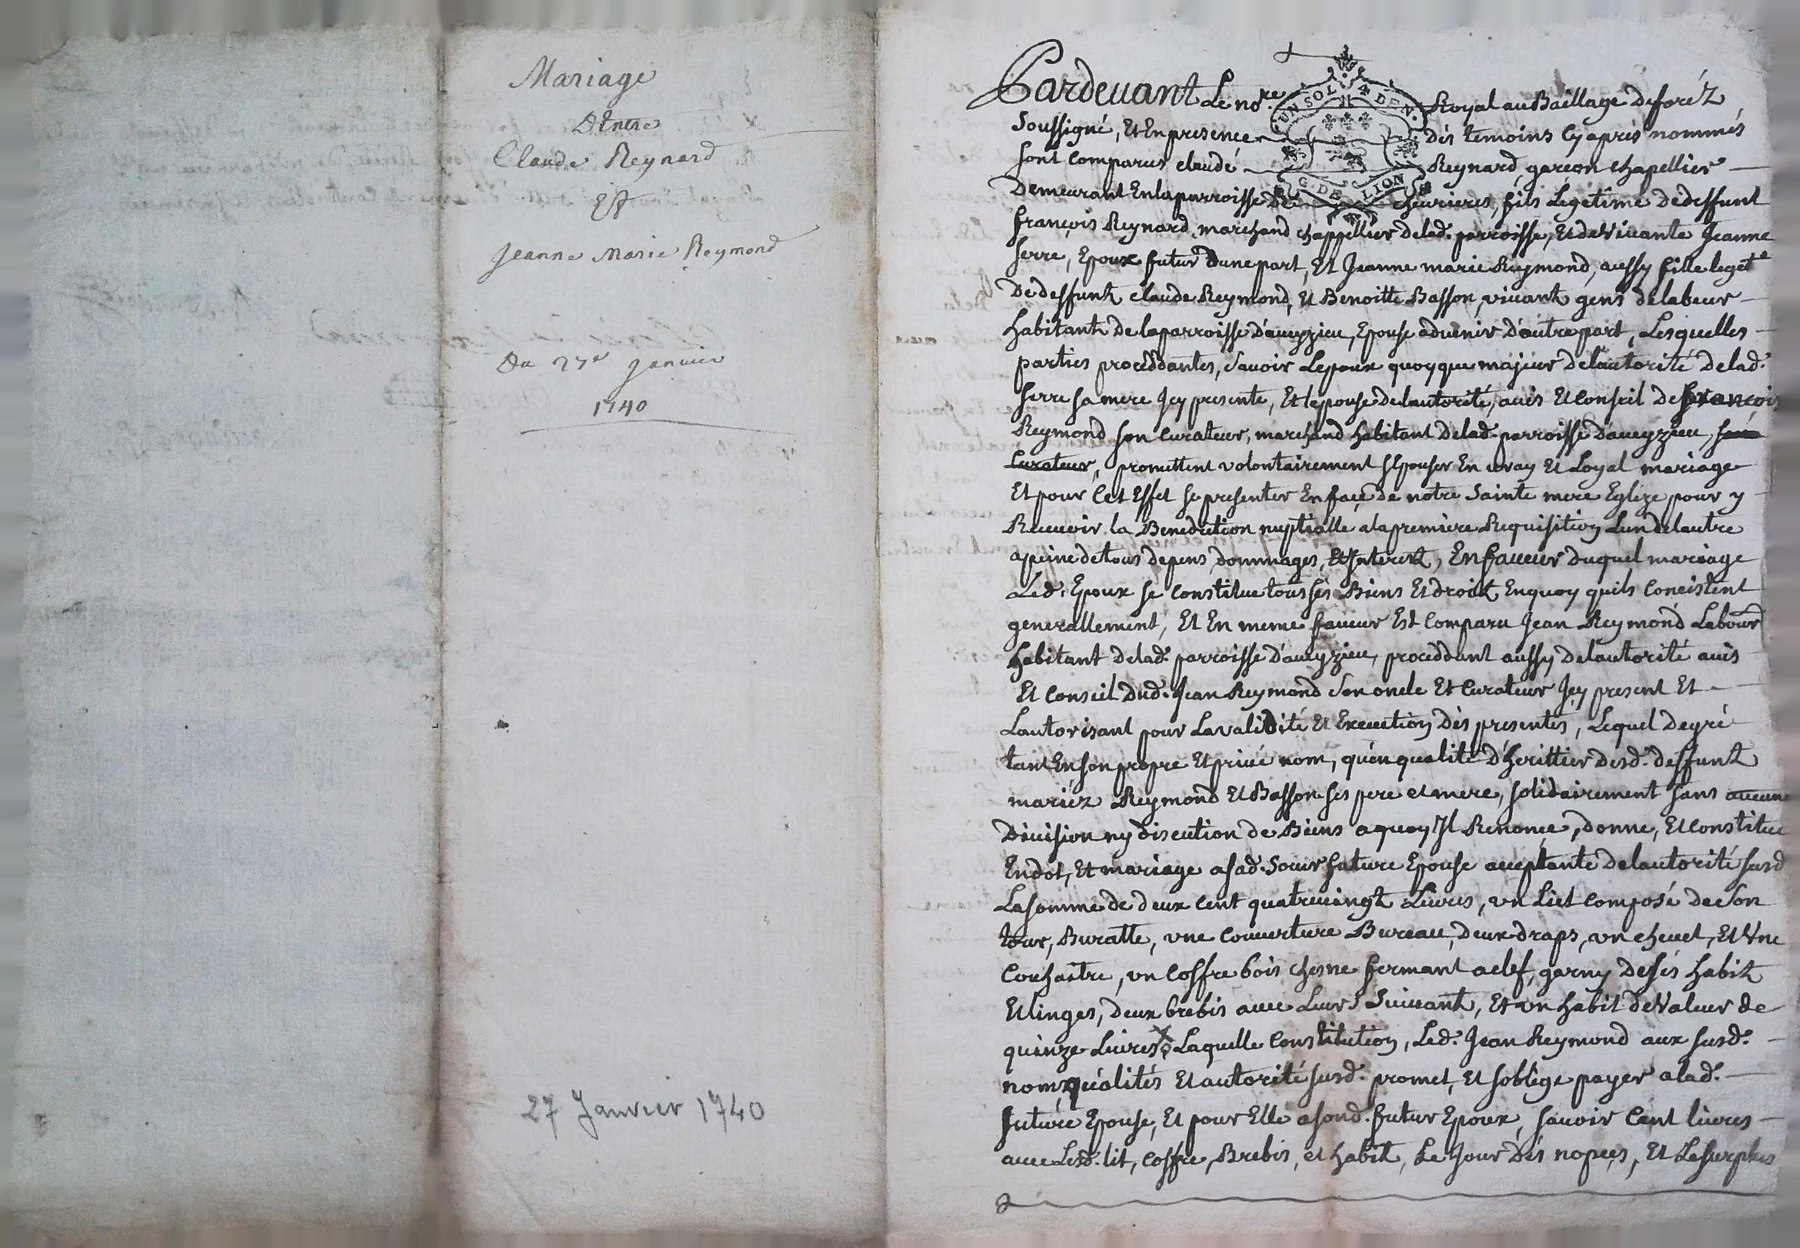 Mariage
D'Entre
Claude Reynard
Et
Jeanne Marie Reymond
Du 27e Janvier
1740
27 Janvier 1740
Pardevant Le nore. Royal au Baillage deforéz
UN SOL 4 DEN.
G. DE LION
Soussigné, Et En presence des temoins Cyaprés nommés
sont Comparus claude Reynard, garcon chapellier
Demeurant En la parroisse de chevrieres, fils Legitime de deffunt
françois Reynard marchand chappellier delad. parroisse, Et de Vivante Jeanne
serre, Epoux futur dune part, Et Jeanne marie Reymond, aussy fille legete
De deffunts claude Reymond, Et Benoitte Basson, vivants gens de labeur
habitants de la parroisse d'aveyzieu, Epouse advenir d'autre part, Lesquelles
parties proceddantes, savoir Lepoux quoyque majeur de l'autorité delad.
serre sa mere Jcy presente, Et lepouse delautorité, avis Et Conseil de françois
Reymond son Curateur, marchand habitant delad. parroisse daveyzieu, son
Curateur, promettent volontairement sEpouser En vray Et Loyal mariage
Et pour Cet Effet se presenter En face de notre Sainte mere Eglize pour y
Recevoir la Benediction nuptialle, a la premiere Requisition Lun delautre
a peine de tous depens dommages, Et Jnterests, En faveur duquel mariage
Led. Epoux se Constitue tous ses Biens Et droits Enquoy quils Concistent
generallement, Et En meme faveur Est Comparu Jean Reymond Labour
habitant delad. parroisse D'aveyzieu, proceddant aussy delautorité avis
Et Conseil dud. Jean Reymond son oncle Et Curateur Jcy present Et
Lautorisant pour La validité Et Execution des presentes, Lequel de gré
tant En son propre Et privé nom, qu'en qualité d'herittier desd. deffunts
mariéz Reymond Et Basson ses pere et mere, solidairement sans aucune
Division ny discution de Biens a quoy Jl Renonce, donne, Et Constitue
En dot, Et mariage a sad. Soeur future Epouse acceptante delautorité susd
La somme de deux Cent quatrevingt Livres, un Lict Composé de Son
tour, Buratte, une Couverture Bureau, deux draps, un chevet, Et Une
Couhaitre, un Coffre bois chesne fermant a clef, garny de ses habits
Et linges, deux brebis avec Leurs Suivants, Et un habit de Valeur de
quinze Livres Laquelle Constitution, Led. Jean Reymond aux susd.
noms, qualités Et autorité susd. promet, Et soblige payer a lad.
future Epouse, Et pour Elle a sond. futur Epoux, savoir Cent livres
avec Lesd. lit, Coffre, Brebis, et habits, Le Jour des nopces, Et Le surplus